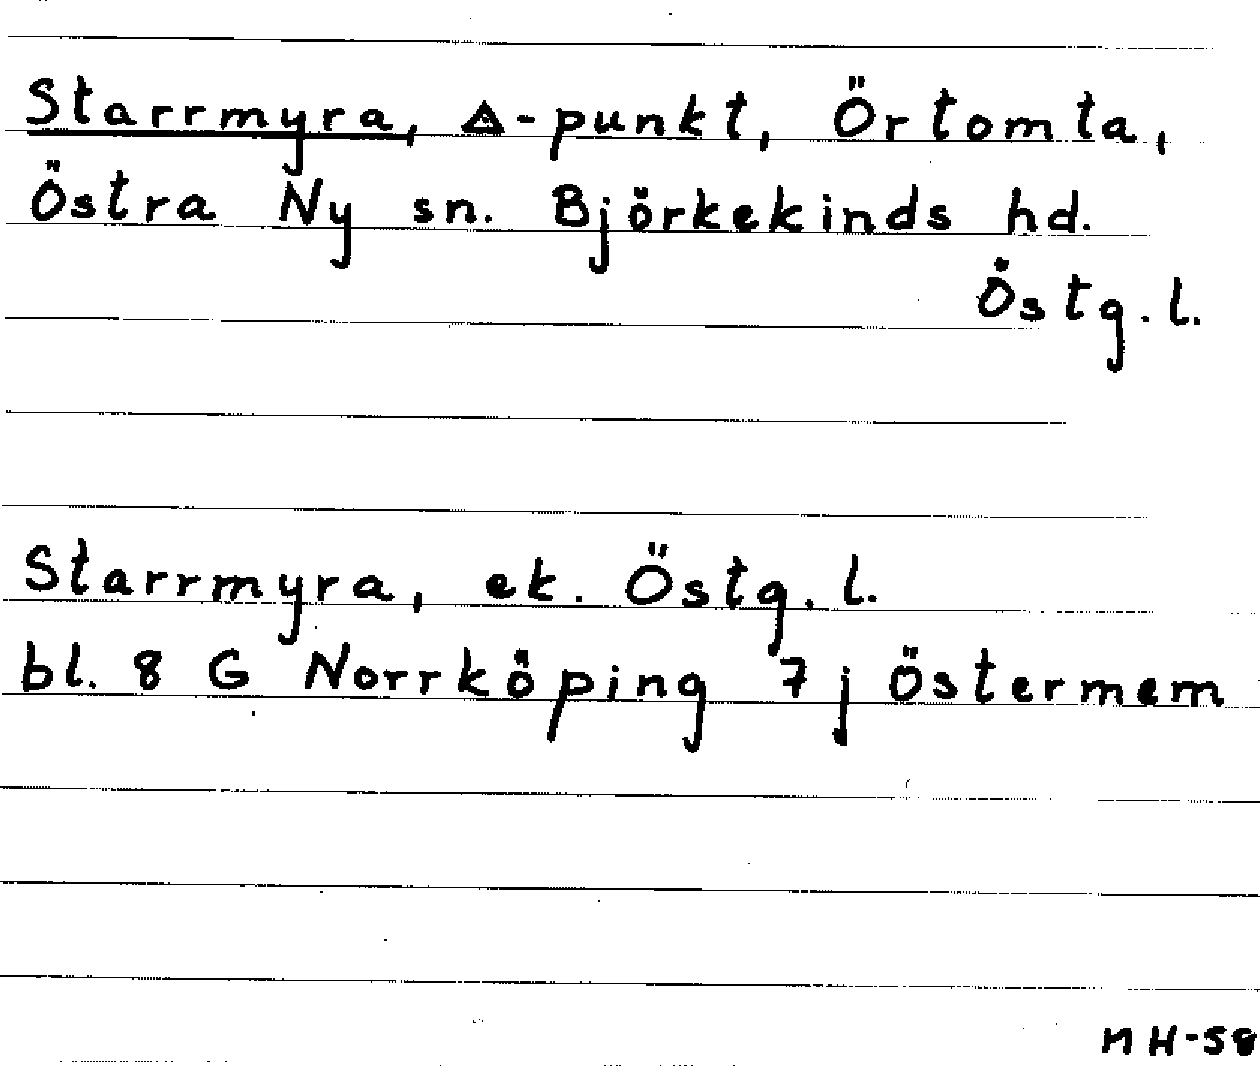 Starrmyra, △-punkt, Örtomta,
Östra Ny sn. Björkekinds hd.
Östg. l.
Starrmyra, ek. Östg. l.
bl. 8 G Norrköping 7 j Östermem
MH-58